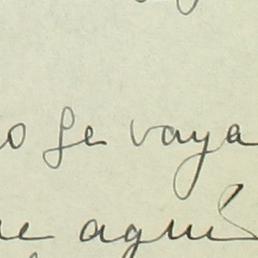 o se vaya
ue aquí